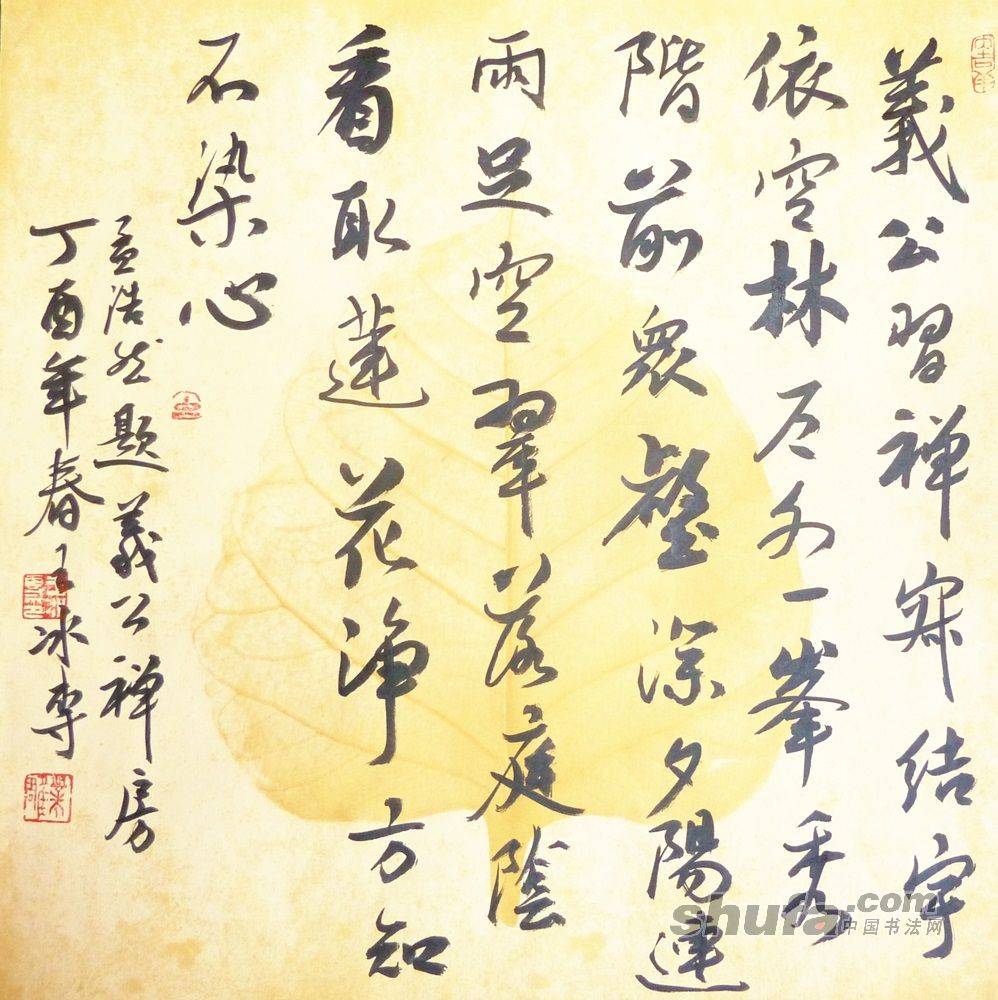 義公習禅寂結宇
依空林戶外一峯秀
階前衆壑深夕陽連
雨足空翠落庭陰
看取蓮花淨方知
不染心
孟浩然題義公禅房
丁酉年春王冰
shufa.com
中国书法网